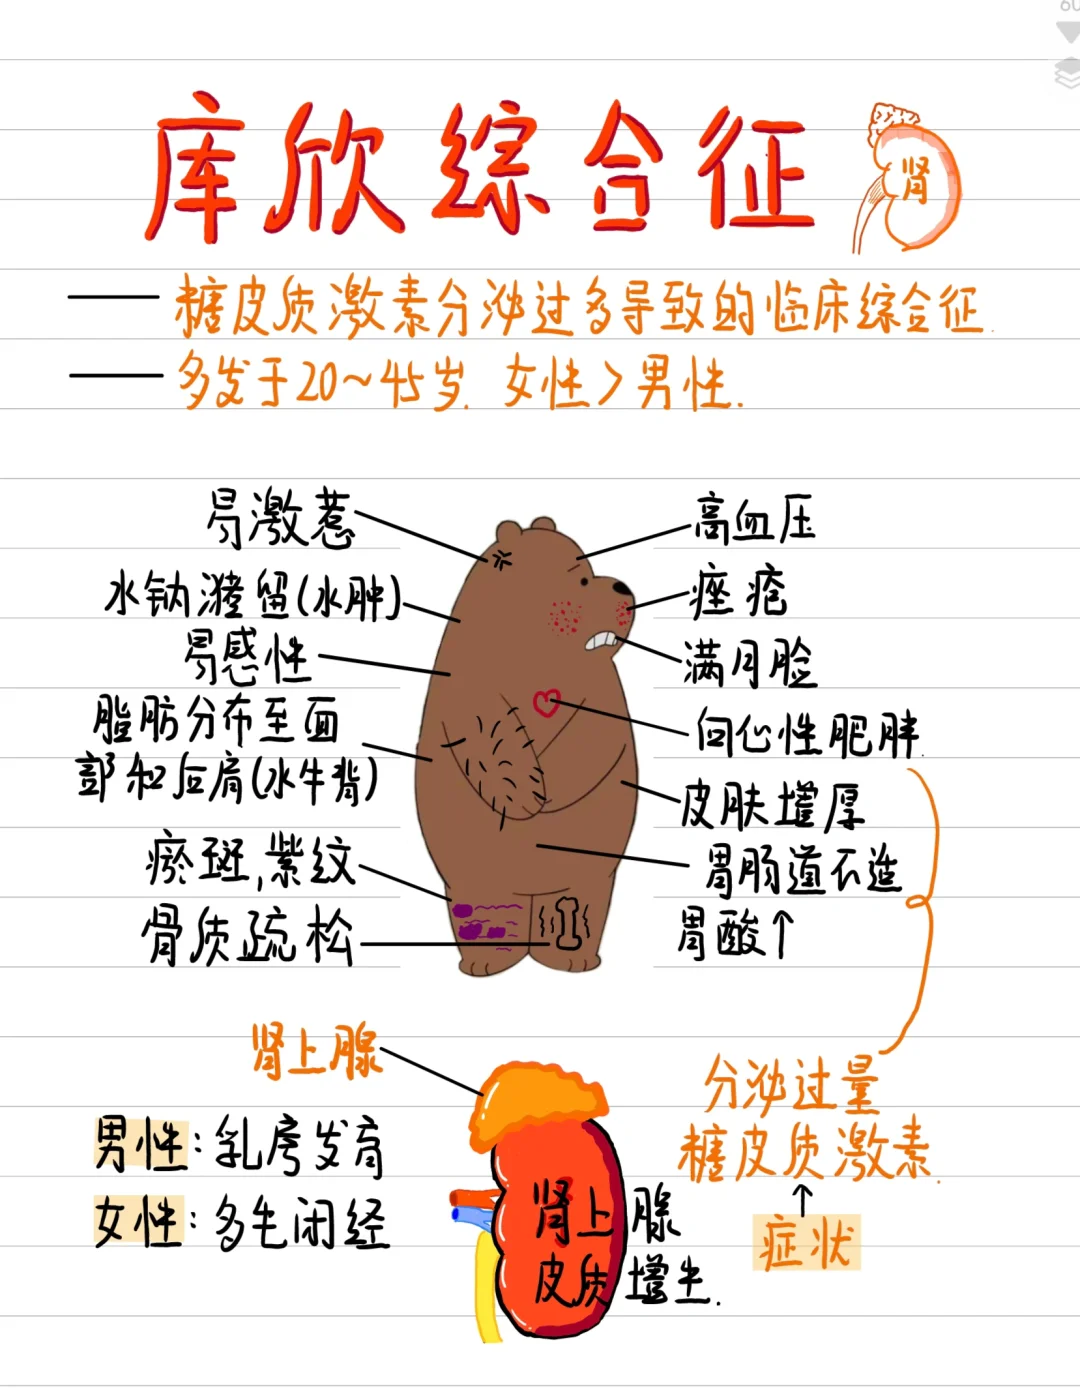 库欣综合征
肾
—— 糖皮质激素分泌过多导致的临床综合征.
—— 多发于20~45岁. 女性>男性.
易激惹
水钠潴留(水肿)
易感性
脂肪分布至面
部和后肩(水牛背)
瘀斑,紫纹
骨质疏松
高血压
痤疮
满月脸
向心性肥胖.
皮肤增厚
胃肠道不适
胃酸↑
肾上腺
男性:乳房发育
女性:多毛闭经
肾上腺
皮质增生.
分泌过量
糖皮质激素.
↑
症状